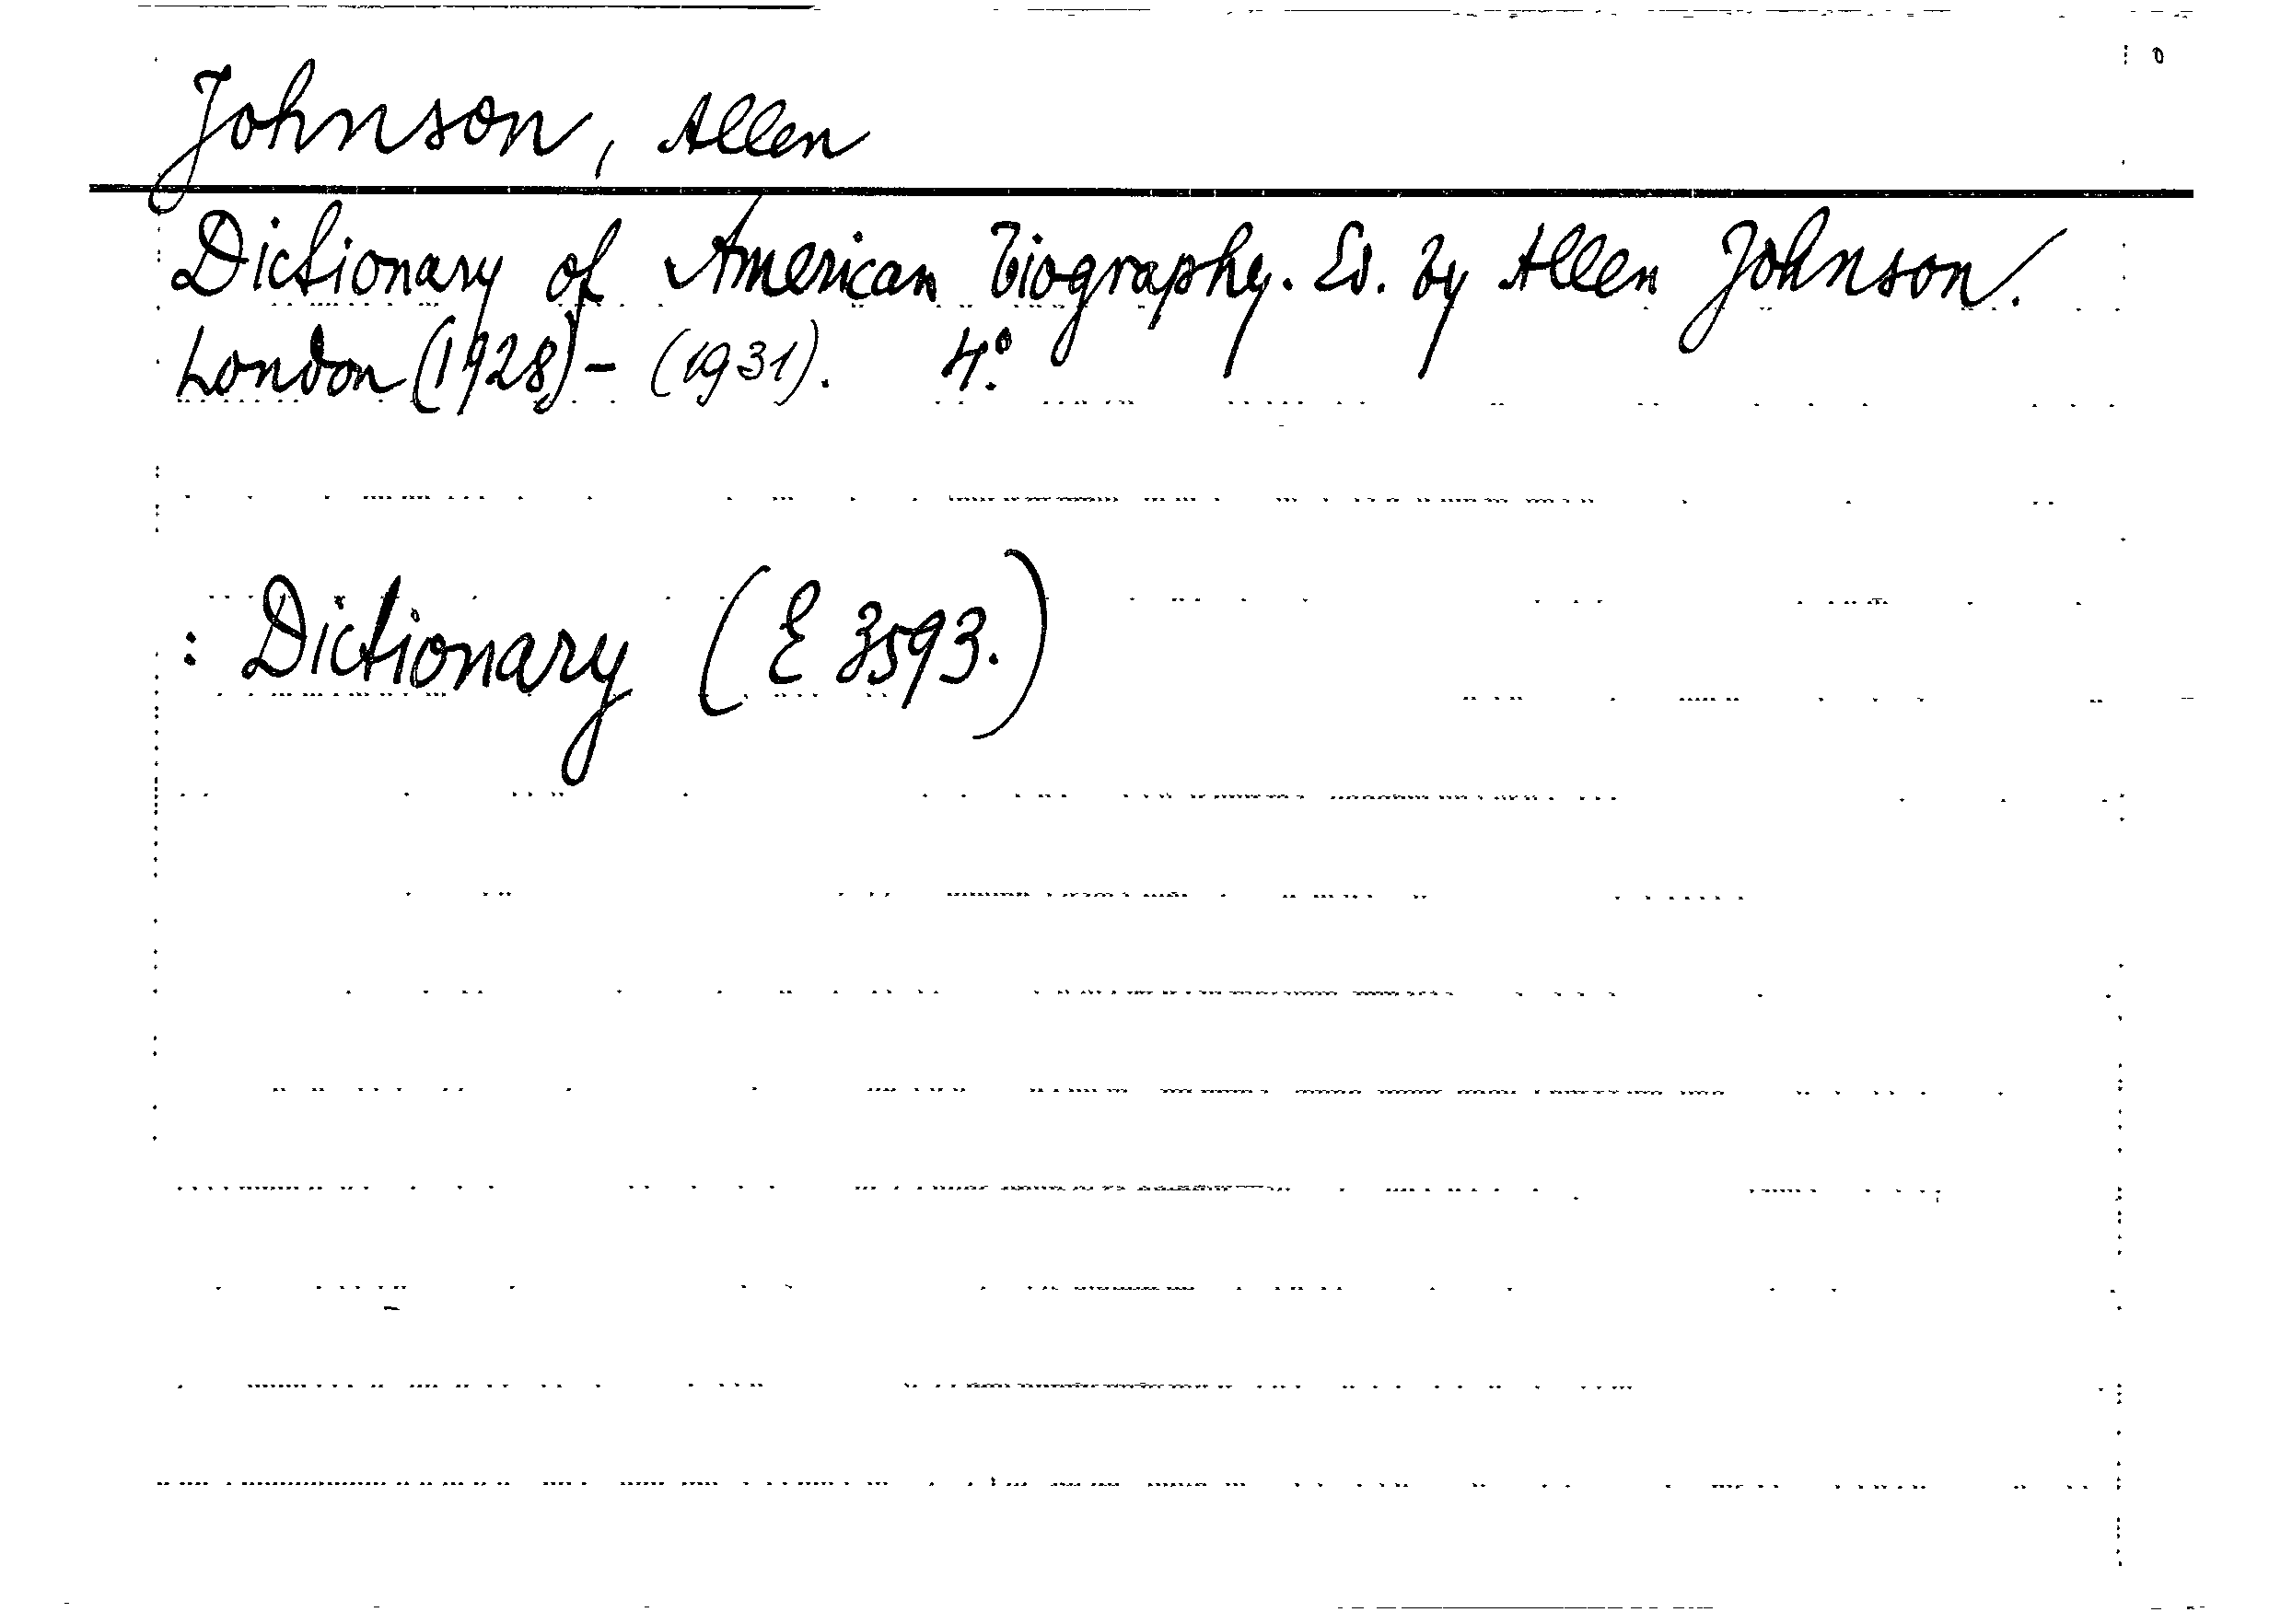 Johnson, Allen
Dictionary of American biography. Ed. by Allen Johnson.
London (1928)- (1931). 4.°
: Dictionary (E 3593.)